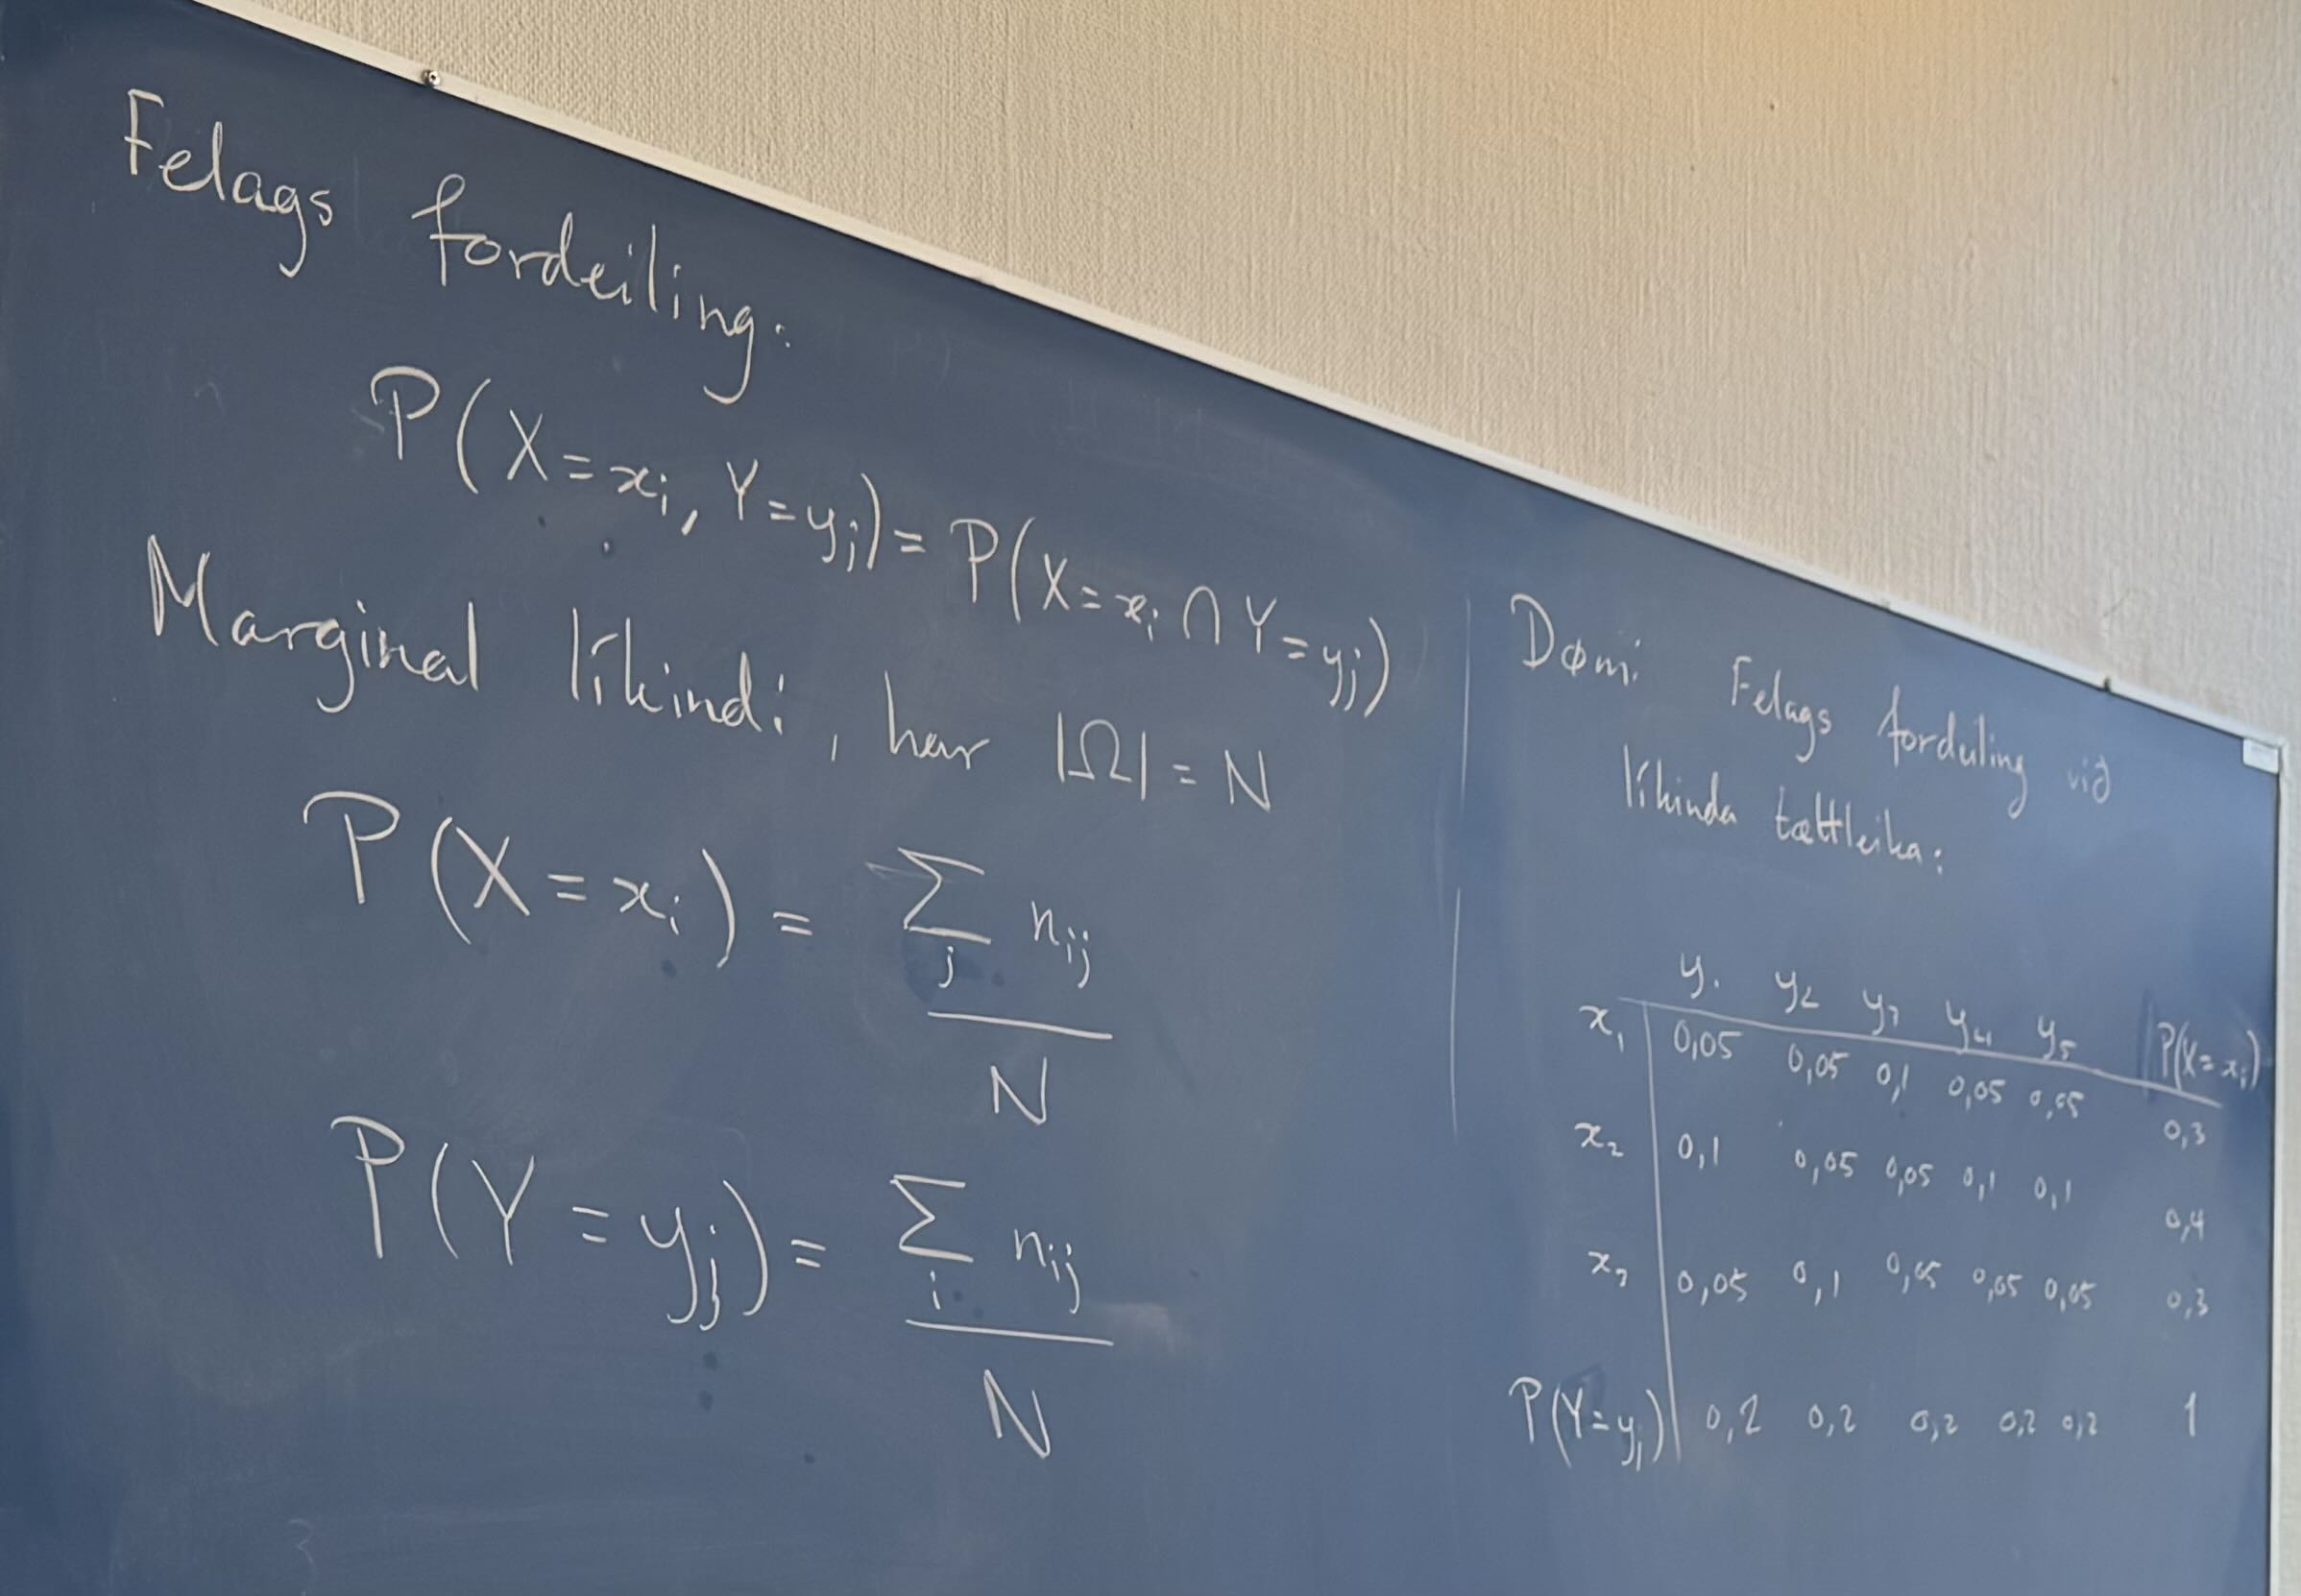 Felags fordeiling:
P(X=xᵢ, Y=yⱼ) = P(X=xᵢ ∩ Y=yⱼ)
Marginal líkindi, har |Ω| = N
P(X=xᵢ) = Σⱼ nᵢⱼ
N
P(Y=yⱼ) = Σᵢ nᵢⱼ
N
Dømi: Felags fordeiling við
líkinda tættleika:
y₁ y₂ y₃ y₄ y₅ P(X=xᵢ)
x₁ 0,05 0,05 0,1 0,05 0,05 0,3
x₂ 0,1 0,05 0,05 0,1 0,1 0,4
x₃ 0,05 0,1 0,05 0,05 0,05 0,3
P(Y=yⱼ) 0,2 0,2 0,2 0,2 0,2 1